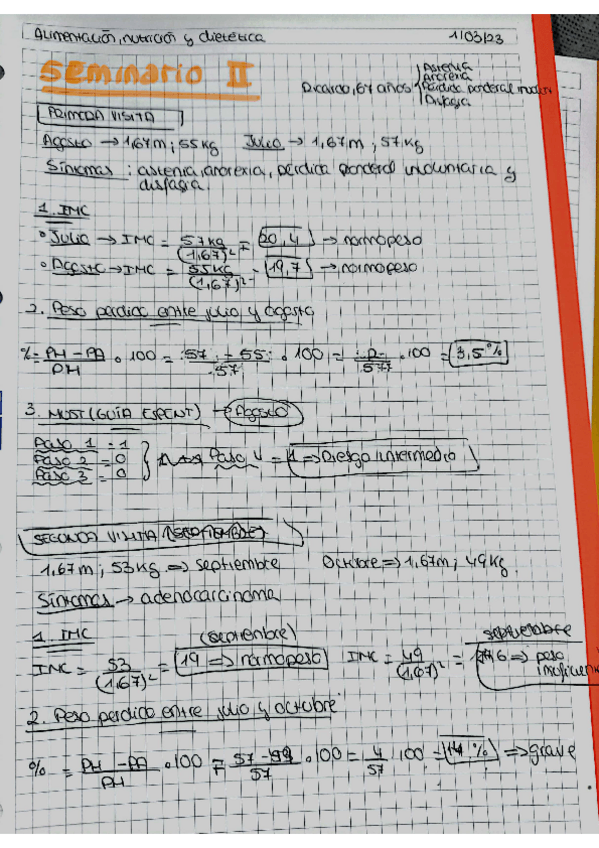 Alimentación, nutrición y dietética 1/03/23
SEMINARIO II
Ricardo, 67 años
Astenia
Anorexia
Pérdida ponderal involun
Disfagia
PRIMERA VISITA
Agosto → 1,67m ; 55kg Julio → 1,67m ; 57kg
Síntomas : astenia, anorexia, pérdida ponderal involuntaria y
disfagia.
1. IMC
Julio → IMC = 57kg / (1,67)² = 20,4 → normopeso
Agosto → IMC = 55kg / (1,67)² = 19,7 → normopeso
2. Peso perdido entre julio y agosto
% = PH - PA / PH · 100 = 57 - 55 / 57 · 100 = 2 / 57 · 100 = 3,5%
3. MUST (GUÍA ESPENT) → Agosto
Paso 1 = 1
Paso 2 = 0
Paso 3 = 0
Paso 4 = 1 ⇒ Riesgo intermedio
SEGUNDA VISITA (SEPTIEMBRE)
1,67m ; 53kg ⇒ septiembre Octubre ⇒ 1,67m ; 49kg
Síntomas → adenocarcinoma
1. IMC (septiembre) septiembre
IMC = 53 / (1,67)² = 19 ⇒ normopeso IMC = 49 / (1,67)² = ⇒ peso
insuficien
2. Peso perdido entre julio y octubre
% = PH - PA / PH · 100 = 57 - / 57 · 100 = / 57 · 100 = 14% ⇒ grave